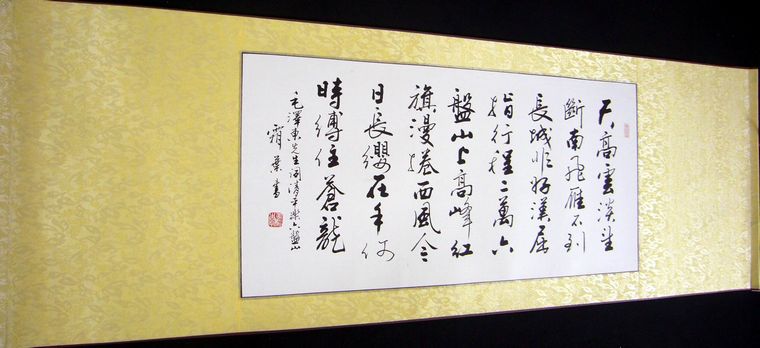 天高雲淡望
斷南飛雁不到
長城非好漢屈
指行程二萬六
盤山上高峰紅
旗漫捲西風今
日長纓在手何
時縛住蒼龍
毛澤東先生詞清平樂六盤山
霜葉書